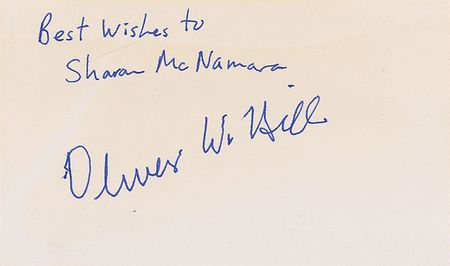 Best Wishes to
Sharon McNamara
Oliver W. Hill